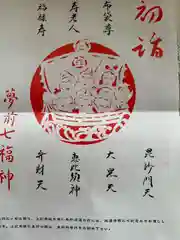 初詣
布袋尊
寿老人
福禄寿
毘沙門天
大黒天
恵比須神
弁財天
夢前七福神